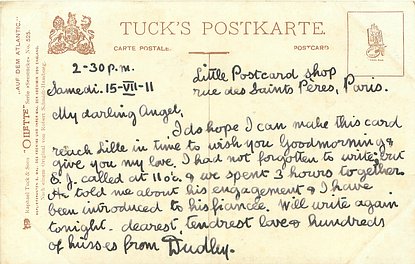 TUCK'S POSTKARTE.
CARTE POSTALE.
POSTCARD
"AUF DEM ATLANTIC."
"OILETTE"
2-30 p.m.
Samedi. 15-VII-11
Little Postcard shop
rue des Saints Pères, Paris.
My darling Angel,
I do hope I can make this card
reach Lille in time to wish you Goodmorning &
give you my love. I had not forgotten to write: but
E.J. called at 11 o'c. & we spent 3 hours together
He told me about his engagement & I have
been introduced to his fiancée. Will write again
tonight. dearest, tendrest love & hundreds
of kisses from Dudley.